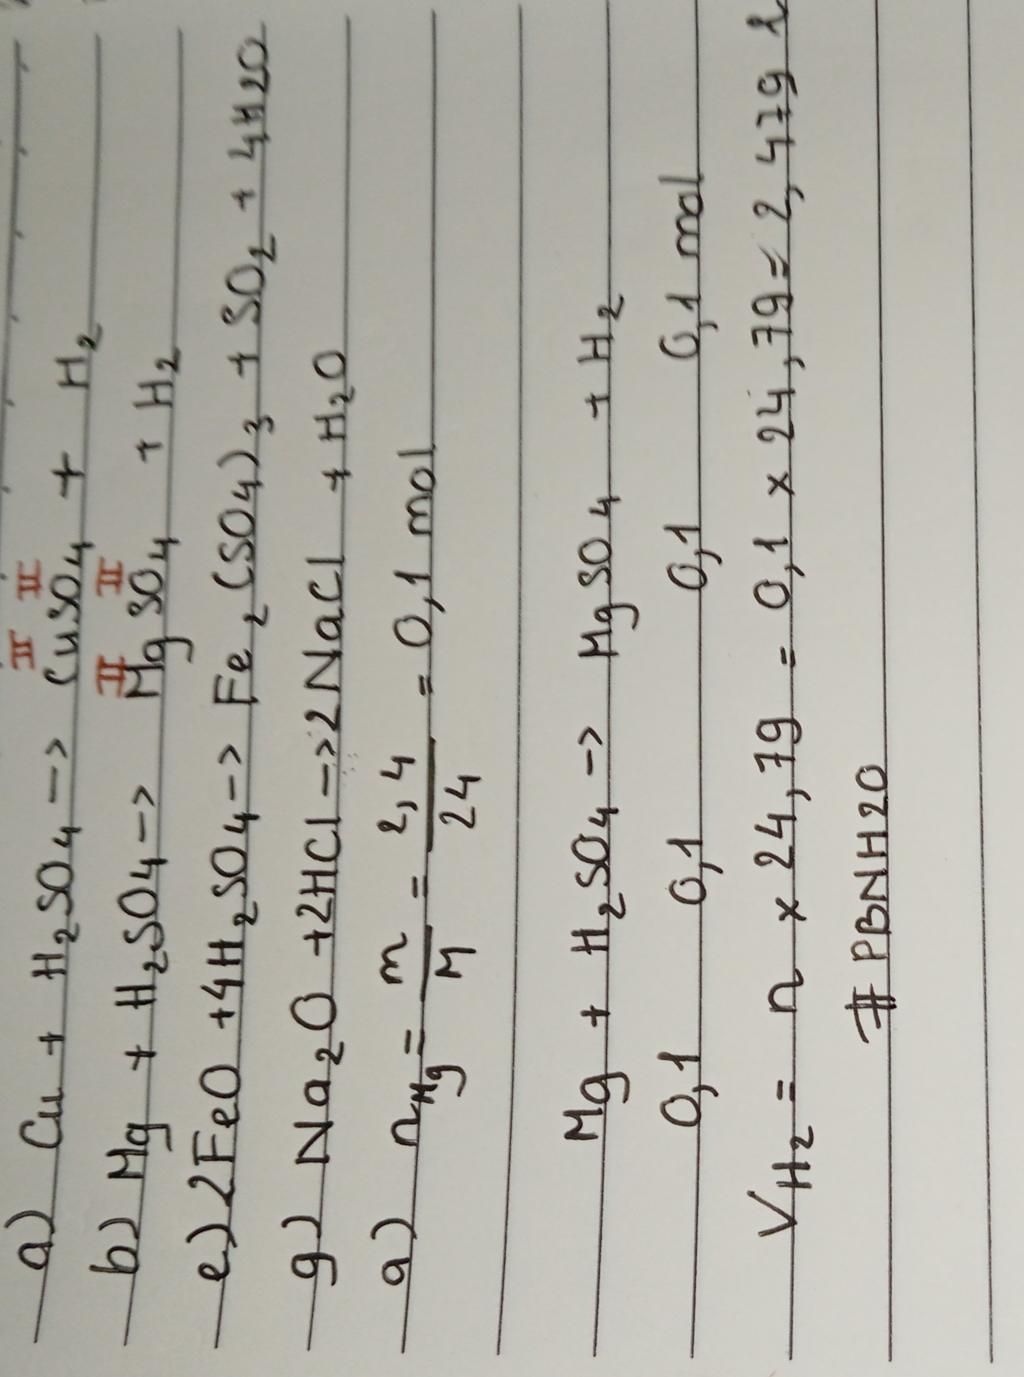 a) Cu + H2SO4 -> CuSO4 + H2
II II
b) Mg + H2SO4 -> MgSO4 + H2
II II
e) 2FeO + 4H2SO4 -> Fe2(SO4)3 + SO2 + 4H2O
g) Na2O + 2HCl -> 2NaCl + H2O
a) nMg = m/M = 2,4/24 = 0,1 mol
Mg + H2SO4 -> MgSO4 + H2
0,1 0,1 0,1 0,1 mol
VH2 = n x 24,79 = 0,1 x 24,79 = 2,479 l
# PBNH20